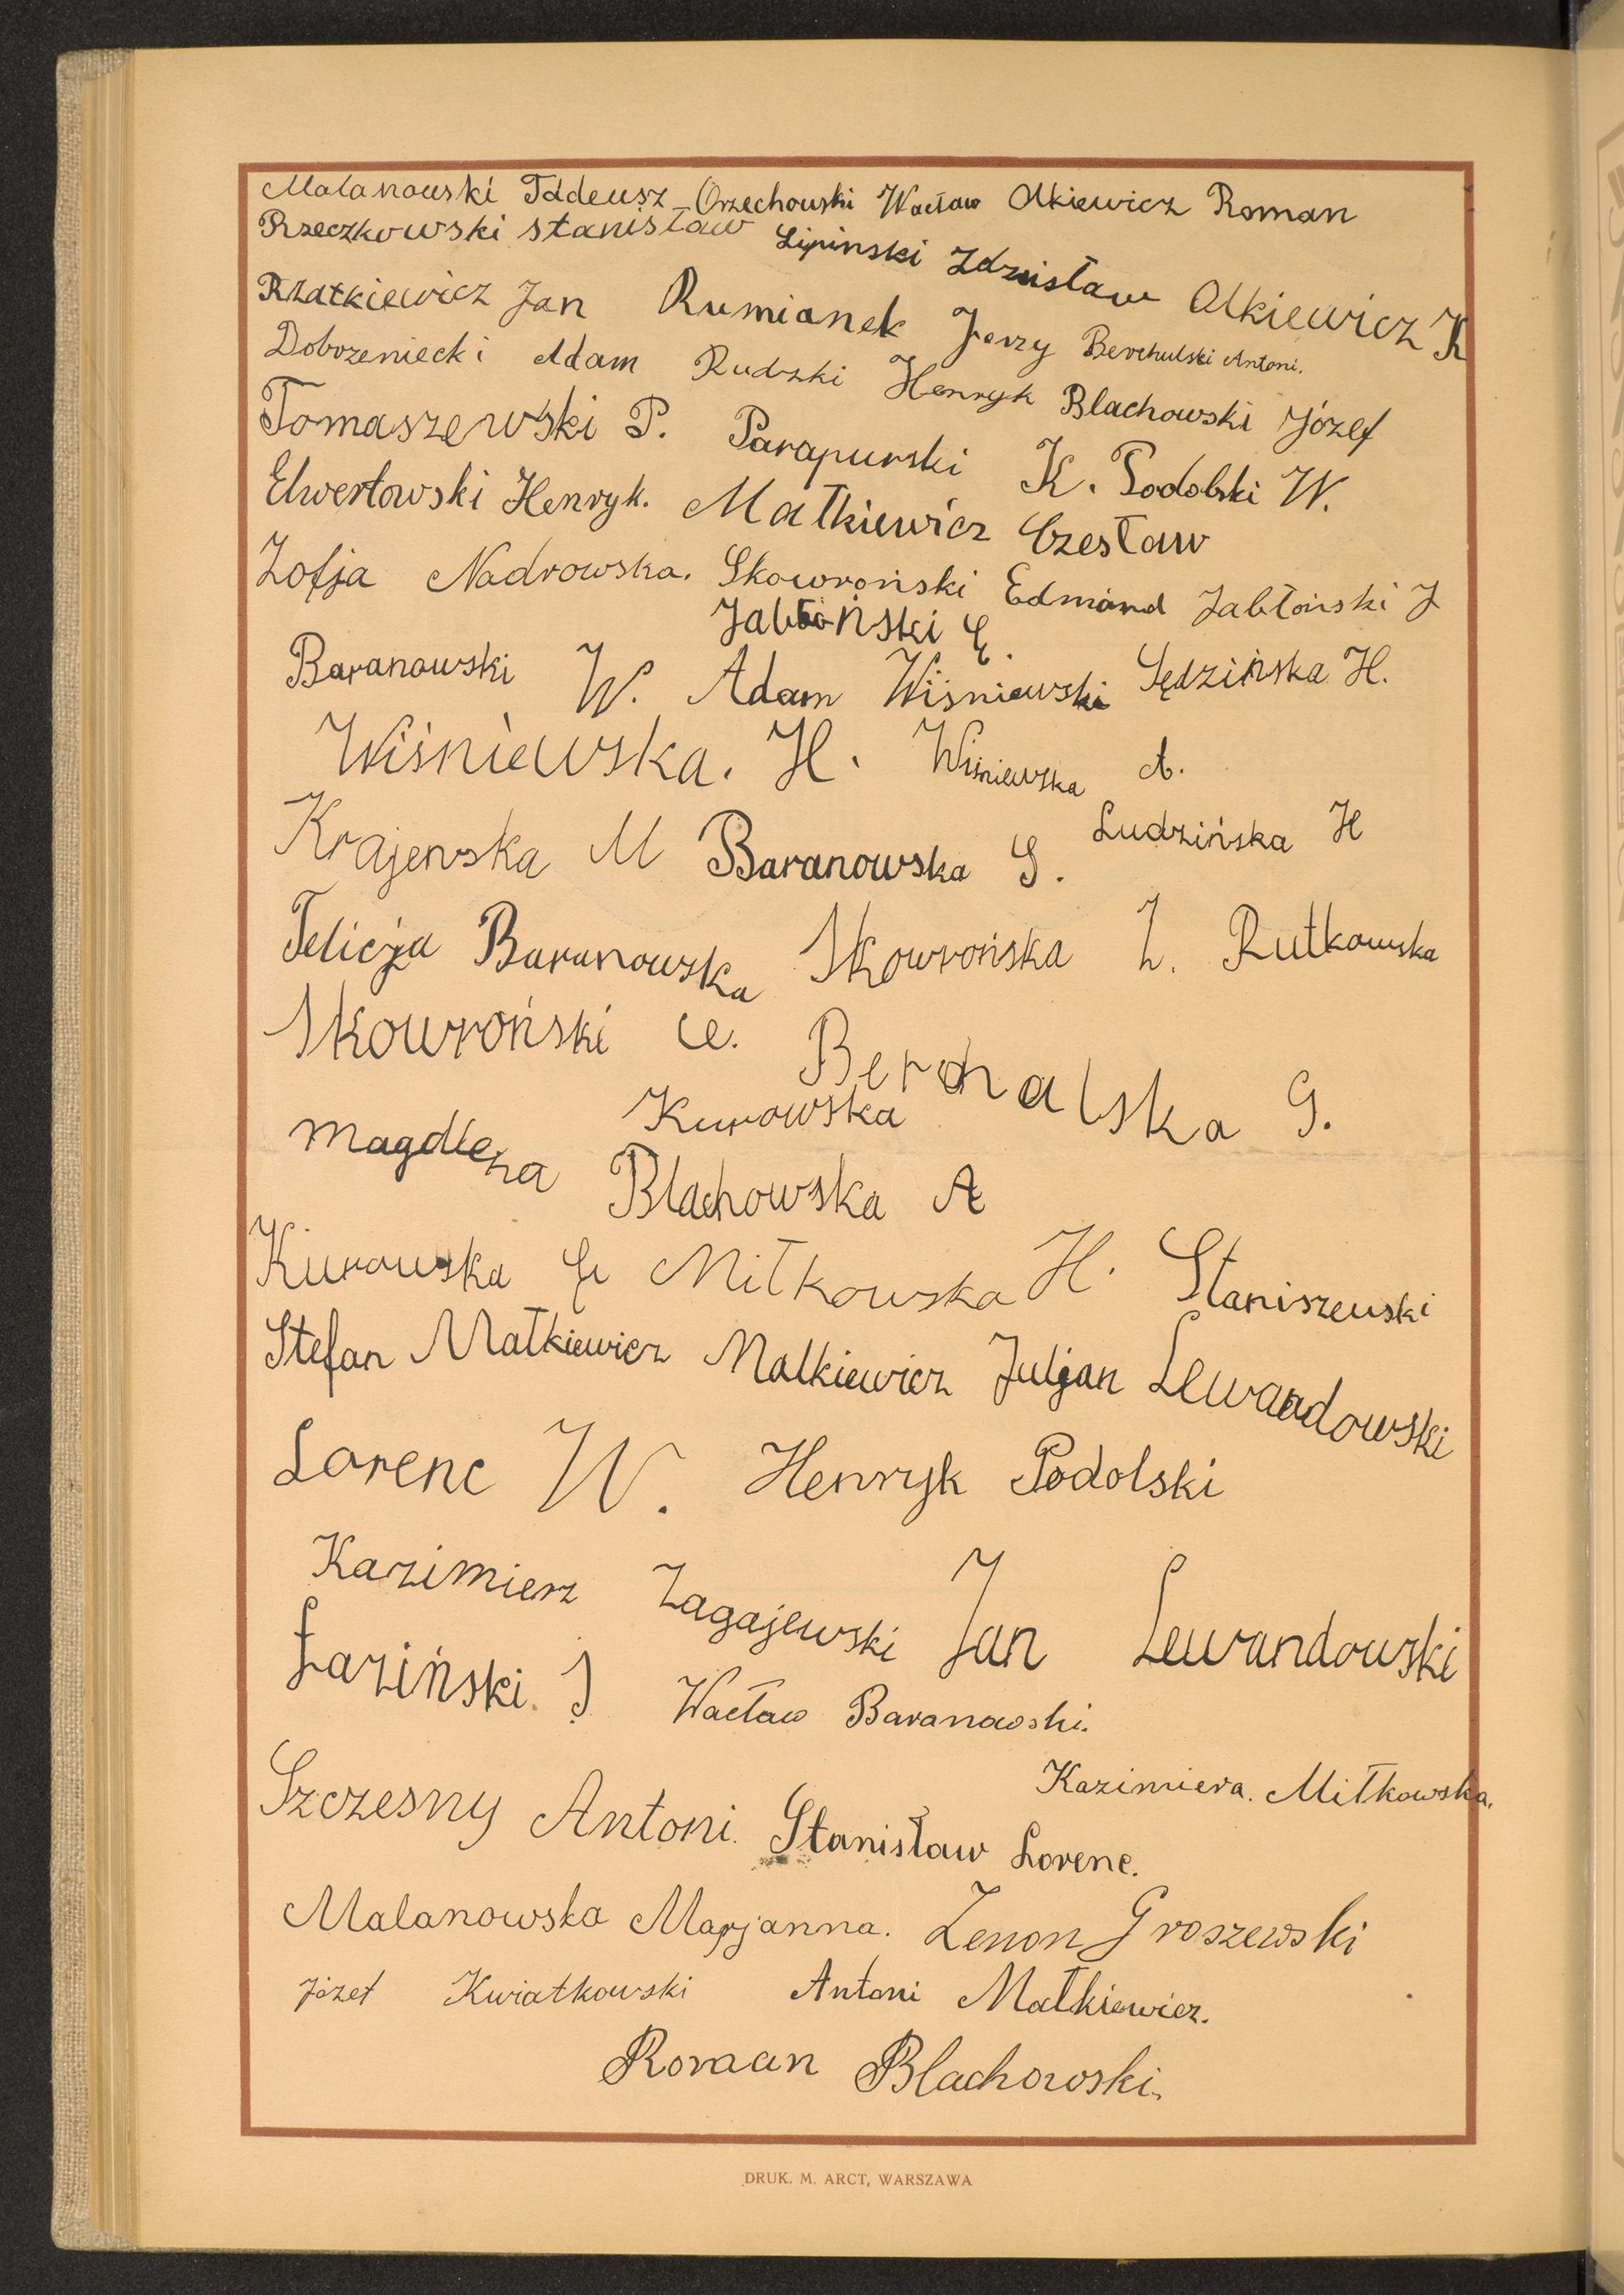 Malanowski Tadeusz Orzechowski Wacław Olkiewicz Roman
Rzeczkowski Stanisław Lipinski Zdzisław Olkiewicz K
Rzatkiewicz Jan Rumianek Jerzy Berchulski Antoni.
Dobrzeniecki Adam Rudzki Henryk Blachowski Józef
Tomaszewski P. Parapurski K. Podolski W.
Elwertowski Henryk. Małkiewicz Czesław
Zofja Nadrowska. Skowroński Edmund Jabłoński J
Jabłoński E.
Baranowski W. Adam Wiśniewski Sędzińska H.
Wiśniewska. H. Wiśniewska A.
Krajewska M Baranowska G. Ludzińska H
Felicja Baranowska Skowrońska Z. Rutkowska
Skowroński Cz. Berchalska G.
Magdlena Kurowska
Blachowska A
Kurowska Miłkowska H. Staniszewski
Stefan Małkiewicz Małkiewicz Juljan Lewandowski
Lorenc W. Henryk Podolski
Kazimierz Zagajewski Jan Lewandowski
Łaziński. J Wacław Baranowski.
Kazimiera. Miłkowska.
Szczesny Antoni. Stanisław Lorenc.
Malanowska Marjanna. Zenon Groszewski
Józef Kwiatkowski Antoni Małkiewicz.
Roman Blachowski.
DRUK. M. ARCT, WARSZAWA